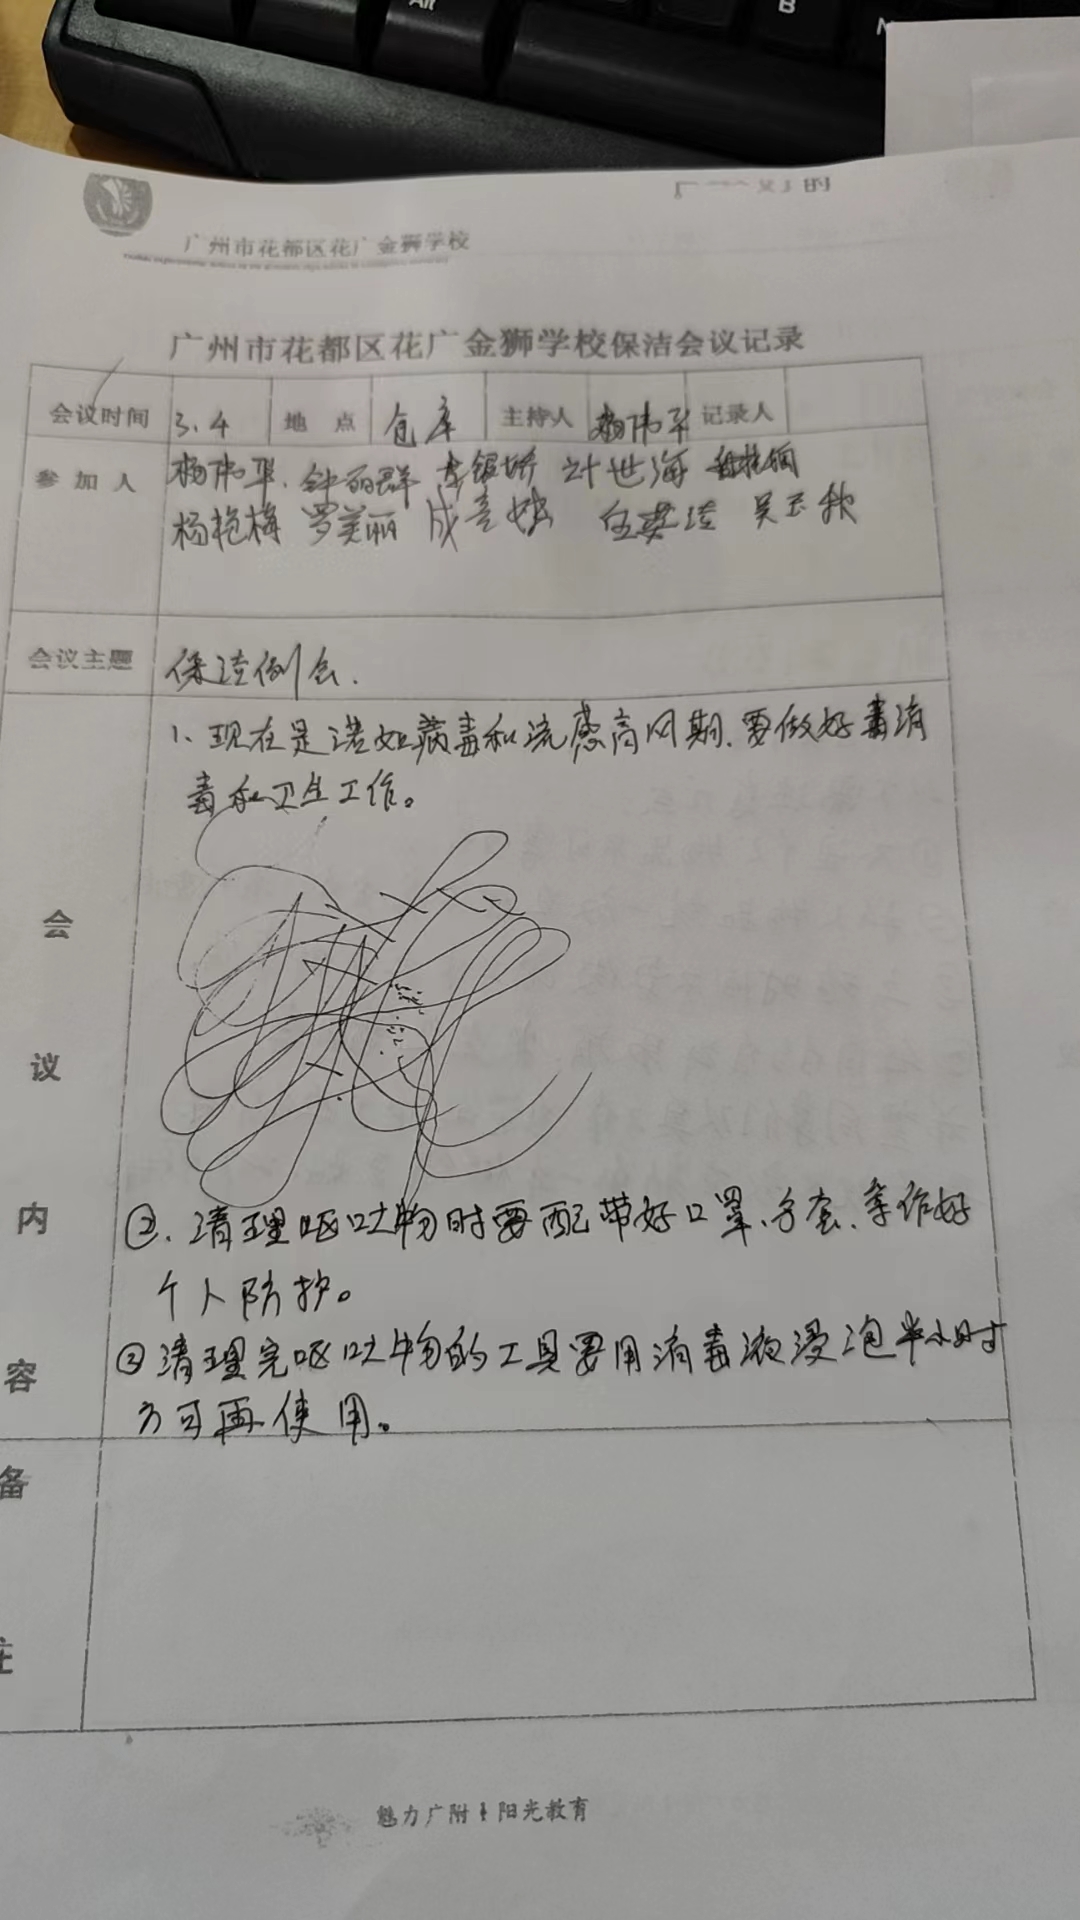 的
广州市花都区花广金狮学校
广州市花都区花广金狮学校保洁会议记录
会议时间 3.4 地 点 仓库 主持人 杨伟平 记录人
参加人 杨伟平、钟丽群 叶世海
杨艳梅 罗美丽 成 伍英洁 吴玉秋
会议主题 保洁例会.
1、现在是诺如病毒和流感高风期、要做好毒消
毒和卫生工作。
②、清理呕吐物时要配带好口罩、手套、等作好
个人防护。
③清理完呕吐物的工具要用消毒液浸泡半小时
方可再使用。
会议内容
备注
魅力广附 阳光教育
Alt
B
N